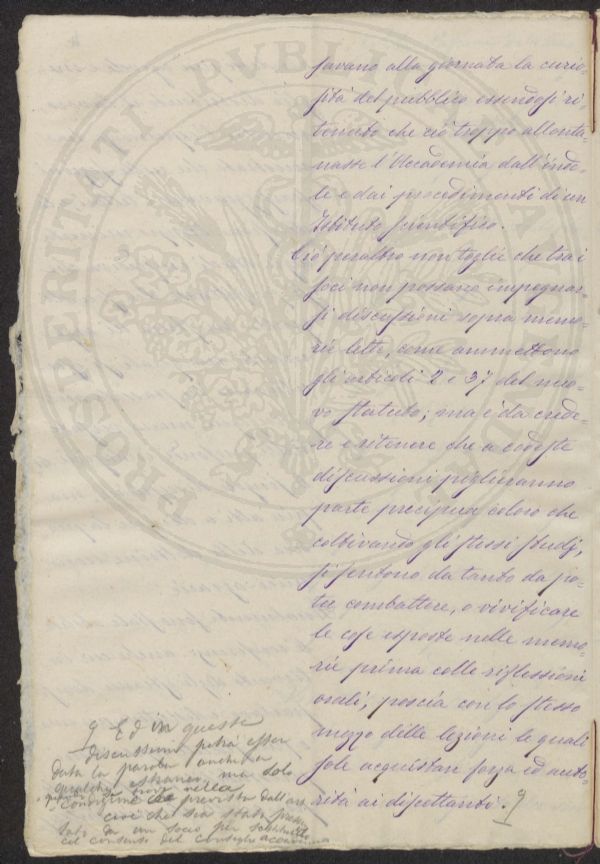 savano alla giornata la curio-
sità del pubblico essendosi ri-
tenuto che ciò troppo allonta-
nasse l'Accademia dall'indo-
le e dai procedimenti di un
Istituto scientifico.
Ciò peraltro non toglie che tra i
soci non possano impegnar-
si discussioni sopra memo-
rie lette, come ammettono
gli articoli 2 e 37 del nuo-
vo Statuto; ma è da crede-
re e ritenere che a codeste
discussioni piglieranno
parte precipua coloro che
coltivando gli stessi studj,
si sentono da tanto da po-
ter combattere, o vivificare
le cose esposte nelle memo-
rie prima colle riflessioni
orali, poscia con lo stesso
mezzo delle lezioni le quali
sole acquistan forza ed auto-
rità ai discettanti.
Ed in queste
discussioni potrà esser
data la parola anche a
qualche estraneo, ma solo
condizione prevista dall'art.
cioè che sia stato presen-
tato da un socio
col consenso del Consiglio
PROSPERITATI PVBLICAE